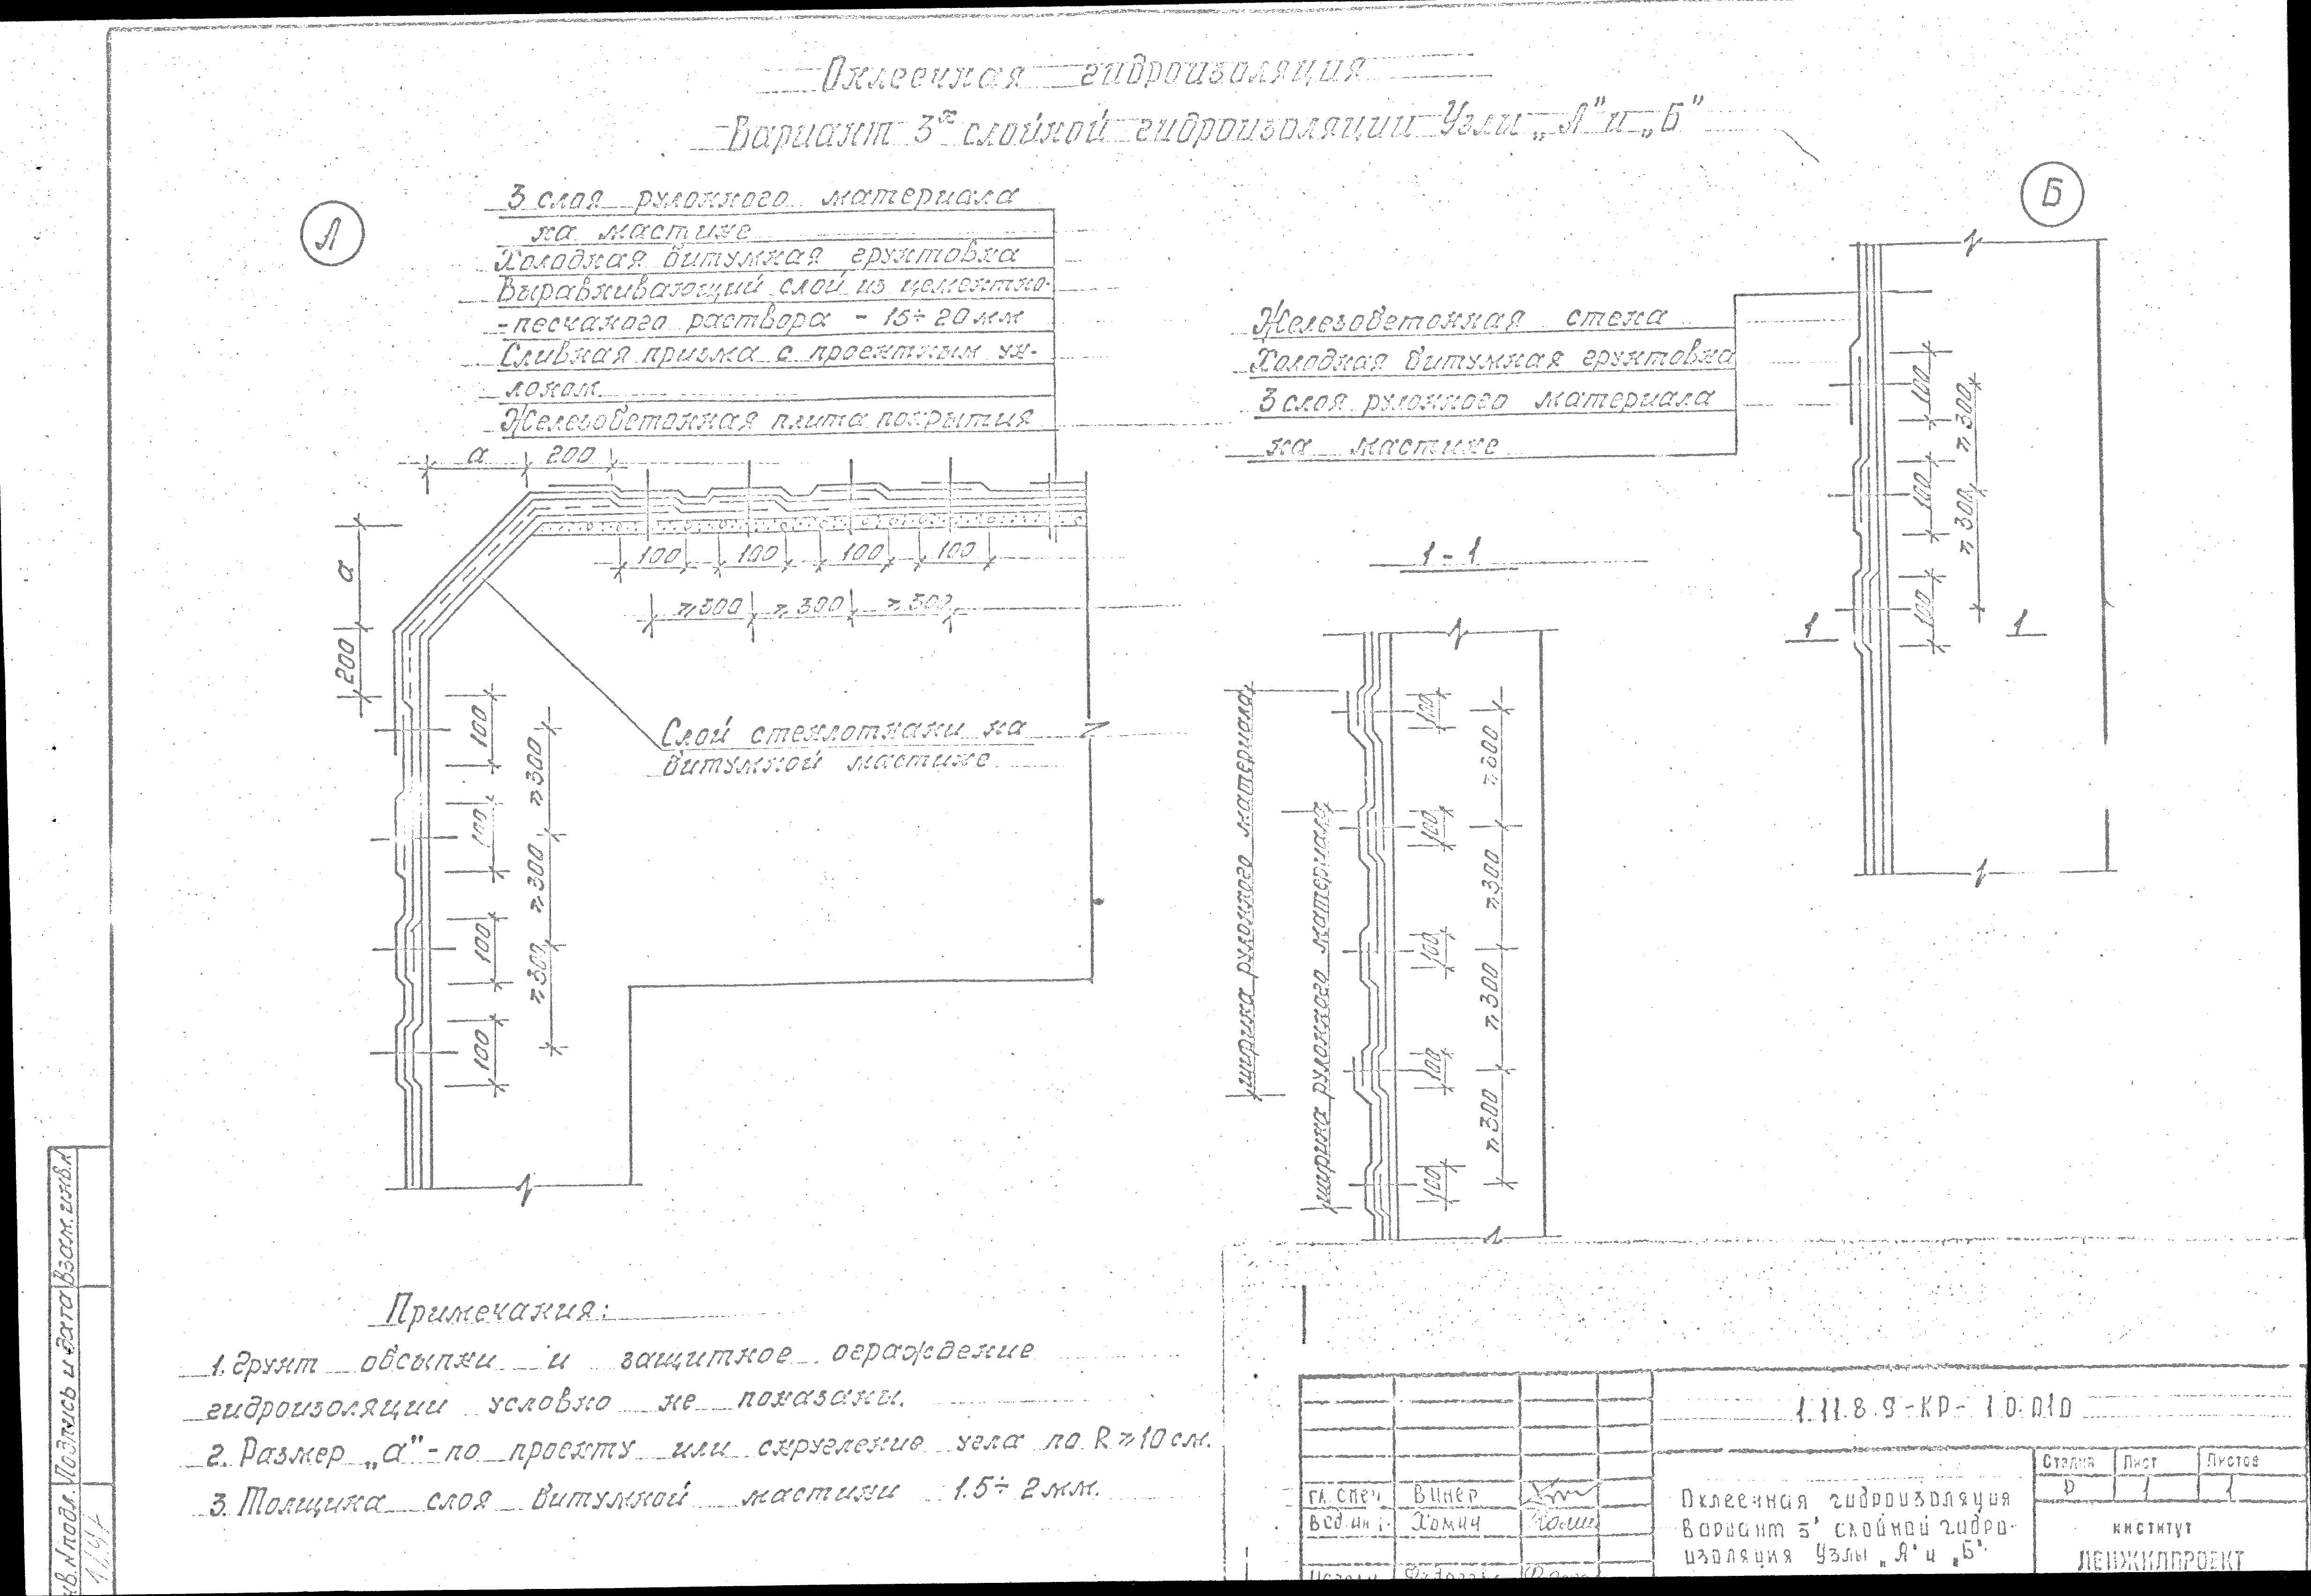 Оклеечная гидроизоляция
Вариант 3х слойной гидроизоляции Узлы „А" и „Б"
А
3 слоя рулонного материала
на мастике
Холодная битумная грунтовка
Выравнивающий слой из цементно-
-песчаного раствора - 15÷20 мм
Сливная призма с проектным ук-
лоном
Железобетонная плита покрытия
а 200
а
200
100 100 100 100
≥300 ≥300 ≥300
100
100
100
100
≥300
≥300
≥300
Слой стеклоткани на
битумной мастике
Б
Железобетонная стена
Холодная битумная грунтовка
3 слоя рулонного материала
на мастике
100
100
100
≥300
≥300
1 1
1-1
ширина рулонного материала
ширина рулонного материала
100
100
100
100
100
≥300
≥300
≥300
≥300
Примечания:
1. Грунт обсыпки и защитное ограждение
гидроизоляции условно не показаны.
2. Размер „а"-по проекту или скругление угла по R≥10 см.
3. Толщина слоя битумной мастики 1.5÷2 мм.
Взам. инв. N
Подпись и дата
Инв. N подл.
1.11.8.9-КР-1.0.010
Гл. спец Винер
Вед. инж Хомич
Оклеечная гидроизоляция
Вариант 3х слойной гидро-
изоляция Узлы „А" и „Б".
Стадия Лист Листов
Р 1 1
институт
ЛЕНЖИЛПРОЕКТ